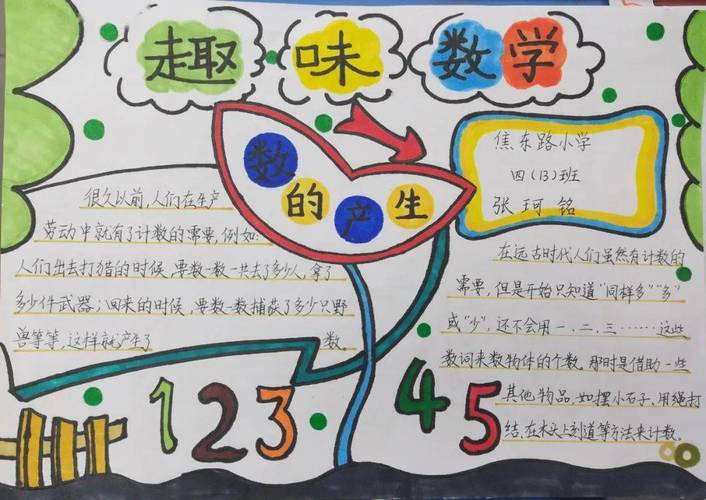 趣味数学
数的产生
焦东路小学
四(13)班
张珂铭
很久以前,人们在生产
劳动中就有了计数的需要,例如:
人们出去打猎的时候,要数一数一共去了多少人,拿了
多少件武器;回来的时候,要数一数捕获了多少只野
兽等等,这样就产生了数。
在远古时代人们虽然有计数的
需要,但是开始只知道“同样多”“多”
或“少”,还不会用一、二、三……这些
数词来数物体的个数,那时是借助一些
其他物品,如摆小石子、用绳打
结、在木头上刻道等方法来计数。
1 2 3 4 5